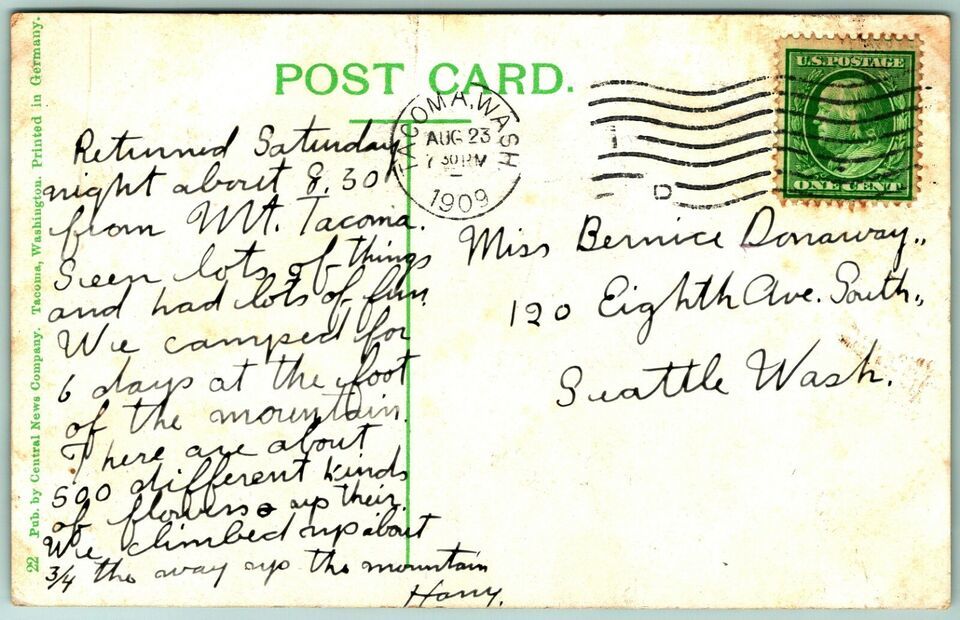 POST CARD.
TACOMA, WASH.
AUG 23
7 30 PM
1909
D
U.S. POSTAGE
ONE CENT
Returned Saturday
night about 8.30
from Mt. Tacoma.
Seen lots of things
and had lots of fun.
We camped for
6 days at the foot
of the mountain.
There are about
500 different kinds
of flowers up their.
We climbed up about
3/4 the way up the mountain
Harry.
Miss Bernice Donaway.,
120 Eighth Ave. South.,
Seattle Wash.
22 Pub. by Central News Company. Tacoma, Washington. Printed in Germany.